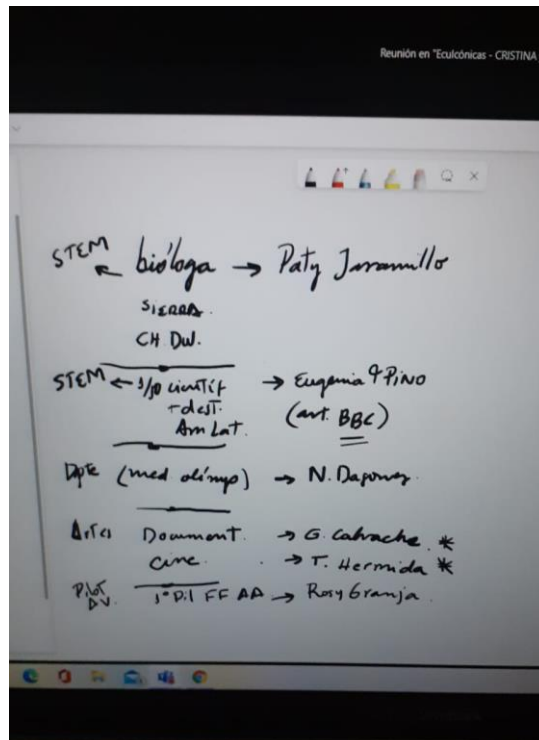 Reunión en "Eculcónicas - CRISTINA
STEM ← bióloga → Paty Jaramillo
SIERRA.
CH DW.
STEM ← científ → Eugenia Pino
+ dest. (art. BBC)
Am Lat.
Dpte (med olímp) → N. Dajomez.
Artes Document. → G. Calvache. *
Cine. → T. Hermida *
Pilot AV. 1º Pil FF AA → Rosy Granja.